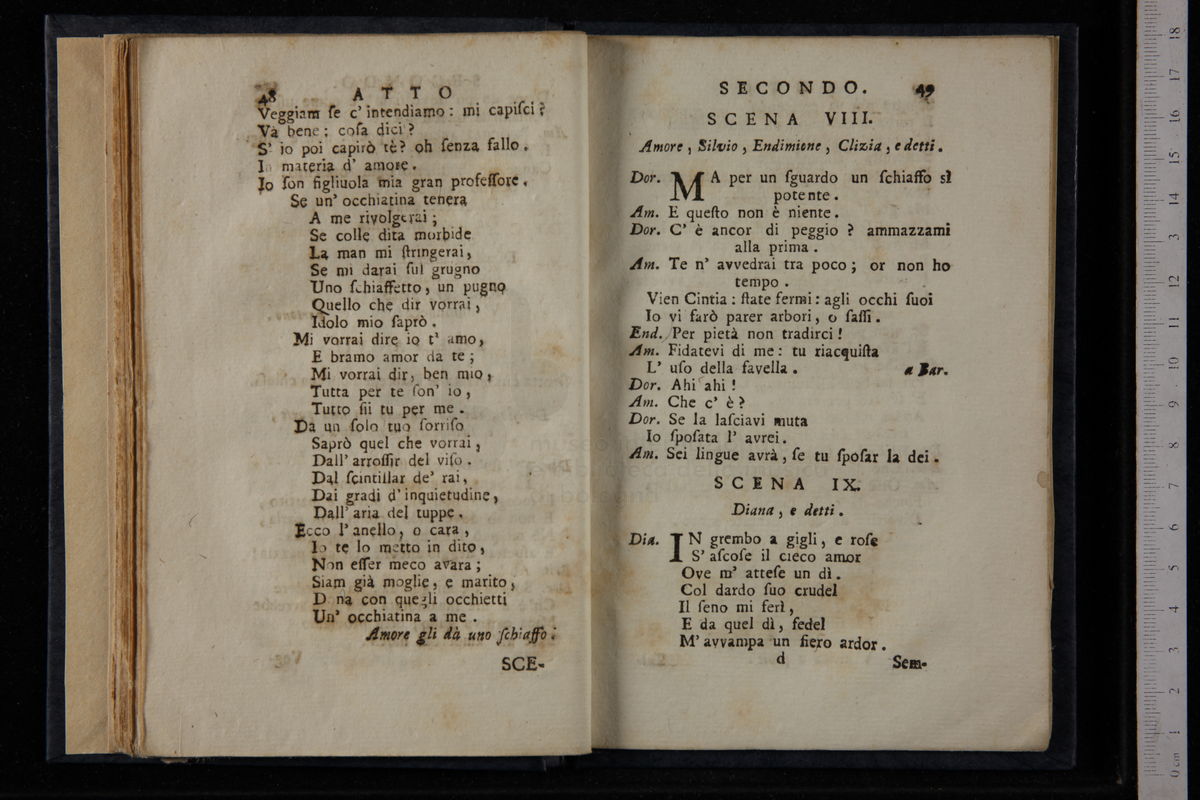 48 A T T O
Veggiam ſe c' intendiamo : mi capiſci ?
Và bene ; coſa dici ?
S' io poi capirò tè? oh ſenza fallo .
In materia d' amore .
Io ſon figliuola mia gran profeſſore .
Se un' occhiatina tenera
A me rivolgerai ;
Se colle dita morbide
La man mi ſtringerai,
Se mi darai ſul grugno
Uno ſchiaffetto, un pugno
Quello che dir vorrai ,
Idolo mio ſaprò .
Mi vorrai dire io t' amo,
E bramo amor da te ;
Mi vorrai dir, ben mio,
Tutta per te ſon' io ,
Tutto ſii tu per me .
Da un ſolo tuo ſorriſo
Saprò quel che vorrai ,
Dall' arroſſir del viſo .
Dal ſcintillar de' rai,
Dai gradi d' inquietudine,
Dall' aria del tuppe .
Ecco l' anello, o cara ,
Io te lo metto in dito,
Non eſſer meco avara ;
Siam già moglie, e marito,
Dona con quegli occhietti
Un' occhiatina a me .
Amore gli dà uno ſchiaffo .
SCE-
SECONDO. 49
SCENA VIII.
Amore , Silvio , Endimione , Clizia , e detti .
Dor. MA per un ſguardo un ſchiaffo sì
potente .
Am. E queſto non è niente .
Dor. C' è ancor di peggio ? ammazzami
alla prima .
Am. Te n' avvedrai tra poco ; or non ho
tempo .
Vien Cintia : ſtate fermi : agli occhi ſuoi
Io vi farò parer arbori, o ſaſſi .
End. Per pietà non tradirci !
Am. Fidatevi di me : tu riacquiſta
L' uſo della favella . a Bar.
Dor. Ahi ahi !
Am. Che c' è ?
Dor. Se la laſciavi muta
Io ſpoſata l' avrei .
Am. Sei lingue avrà , ſe tu ſpoſar la dei .
SCENA IX.
Diana , e detti .
Dia. IN grembo a gigli, e roſe
S' aſcoſe il cieco amor
Ove m' atteſe un dì .
Col dardo ſuo crudel
Il ſeno mi ferì ,
E da quel dì, fedel
M' avvampa un fiero ardor .
d Sem-